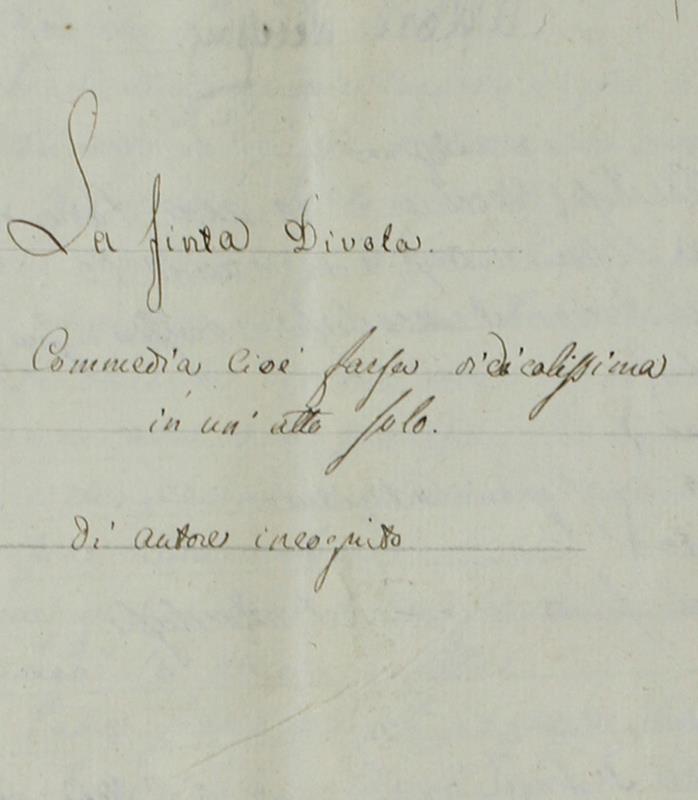 La finta Divota.
Commedia cioè farsa ridicolissima
in un' atto solo.
di autore incognito